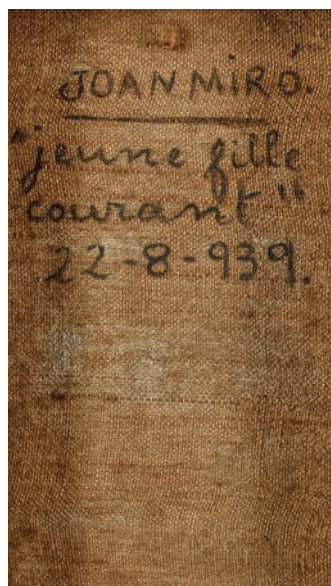 JOAN MIRÓ.
"jeune fille
courant"
22-8-939.